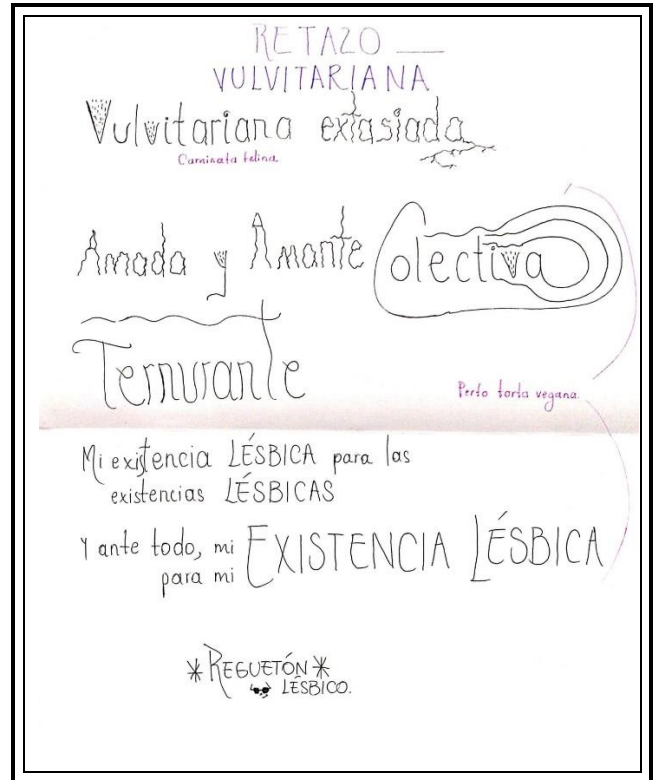 RETAZO __
VULVITARIANA
Vulvitariana extasiada
Caminata felina.
Amada y Amante Colectiva
Ternurante
Perfo torta vegana.
Mi existencia LÉSBICA para las
existencias LÉSBICAS
Y ante todo, mi EXISTENCIA LÉSBICA
para mi
*REGUETÓN*
LÉSBICO.